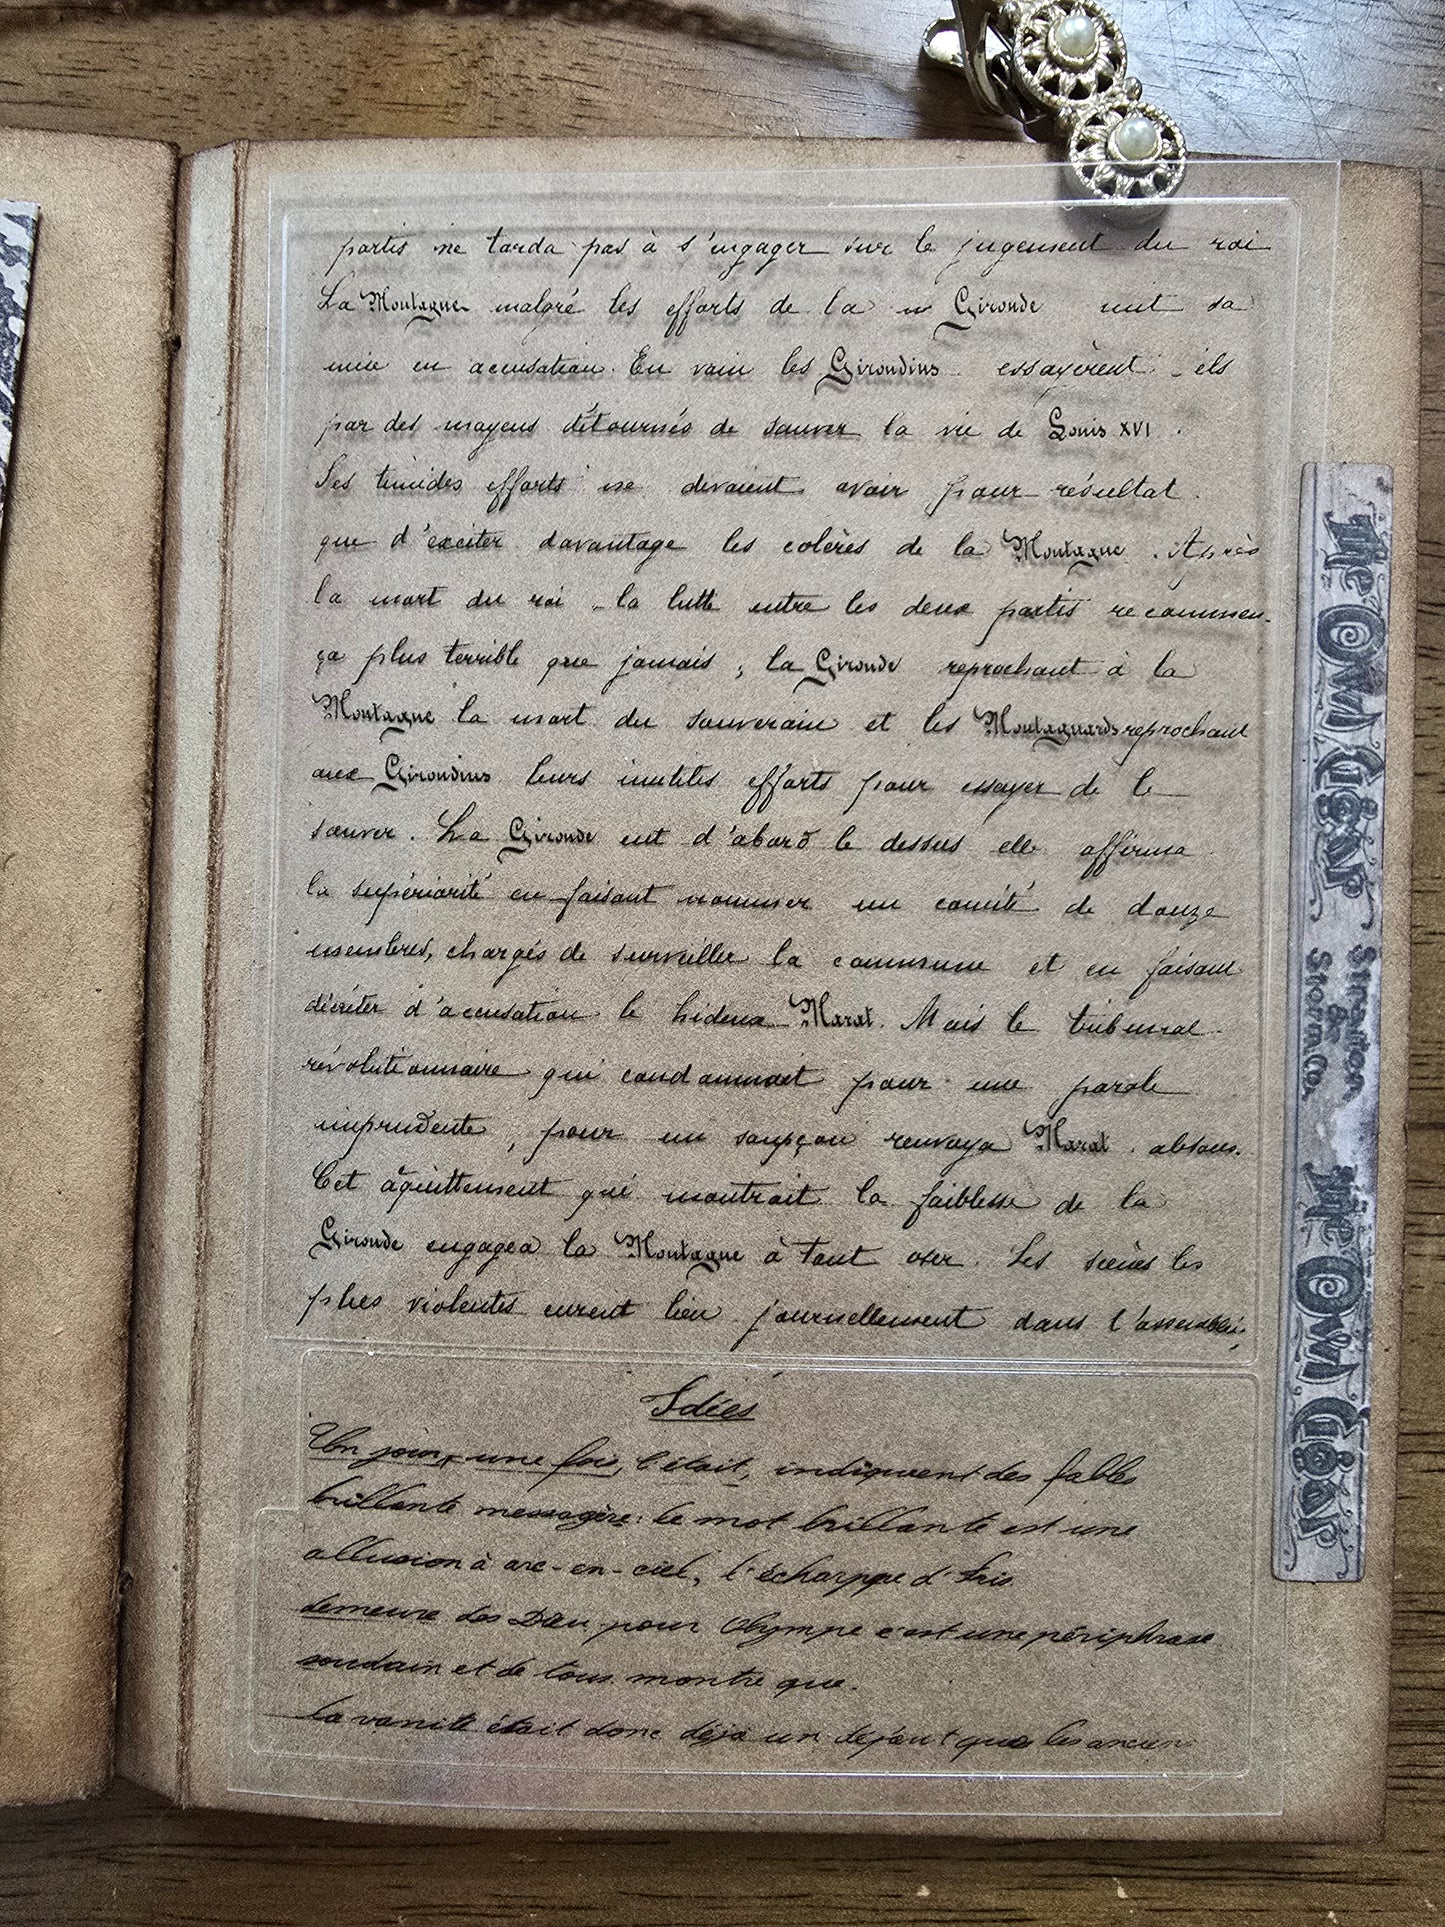 partis ne tarda pas à s'engager sur le jugement du roi
La Montagne malgré les efforts de la Gironde mit sa
mise en accusation. En vain les Girondins essayèrent-ils
par des moyens détournés de sauver la vie de Louis XVI.
Ses timides efforts ne devaient avoir pour résultat
que d'exciter davantage les colères de la Montagne. Après
la mort du roi la lutte entre les deux partis recommen-
ça plus terrible que jamais; la Gironde reprochant à la
Montagne la mort du souverain et les Montagnards reprochant
aux Girondins leurs inutiles efforts pour essayer de le
sauver. La Gironde eut d'abord le dessus elle affirma
la supériorité en faisant nommer un comité de douze
membres, chargés de surveiller la commune et en faisant
décréter d'accusation le hideux Marat. Mais le tribunal
révolutionnaire qui condamnait pour une parole
imprudente, pour un soupçon renvoya Marat absous.
Cet aquittement qui montrait la faiblesse de la
Gironde engagea la Montagne à tout oser. Les scènes les
plus violentes eurent lieu journellement dans l'assemblée,
Idées
Un jour, une fois, c'était, indiquent des fables
brillante messagère: le mot brillante est une
allusion à arc-en-ciel, l'écharppe d'Iris.
demeure des Dieu pour Olympe c'est une périphrase
soudain et de tous montre que.
la vanité était donc déjà un défaut que les ancien
The Owl Gear
Stratton
&
Storm Co.
The Owl Gear